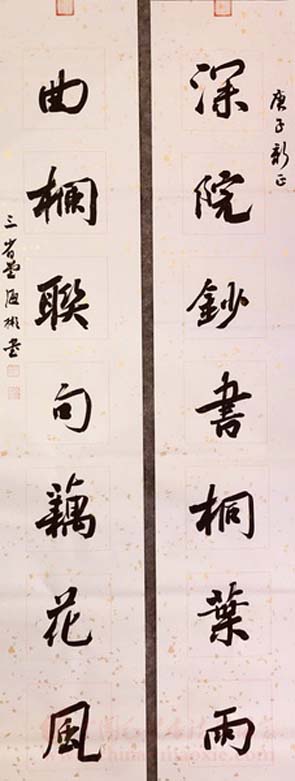 庚子新正
深院鈔書桐葉雨
曲欄聯句藕花風
三省堂